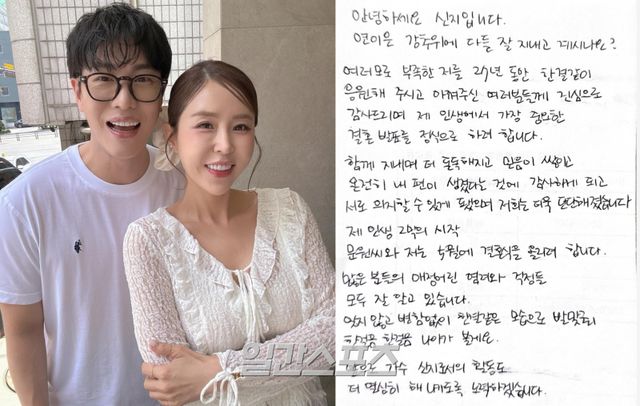 안녕하세요 신지입니다.
연이은 강추위에 다들 잘 지내고 계시나요?
여러모로 부족한 저를 27년 동안 한결같이
응원해 주시고 아껴주신 여러분들께 진심으로
감사드리며 제 인생에서 가장 중요한
결혼 발표를 정식으로 하려 합니다.
함께 지내며 더 돈독해지고 믿음이 쌓이고
온전히 내 편이 생겼다는 것에 감사하게 되고
서로 의지할 수 있게 됐으며 저희는 더욱 단단해졌습니다
제 인생 2막의 시작
문원씨와 저는 5월에 결혼식을 올리려 합니다.
많은 분들의 애정어린 염려와 걱정들
모두 잘 알고 있습니다.
잊지 않고 변함없이 한결같은 모습으로 발맞춰
한걸음 한걸음 나아가 볼게요.
가수 신지로서의 활동도
더 열심히 해 나가도록 노력하겠습니다.
일간스포츠